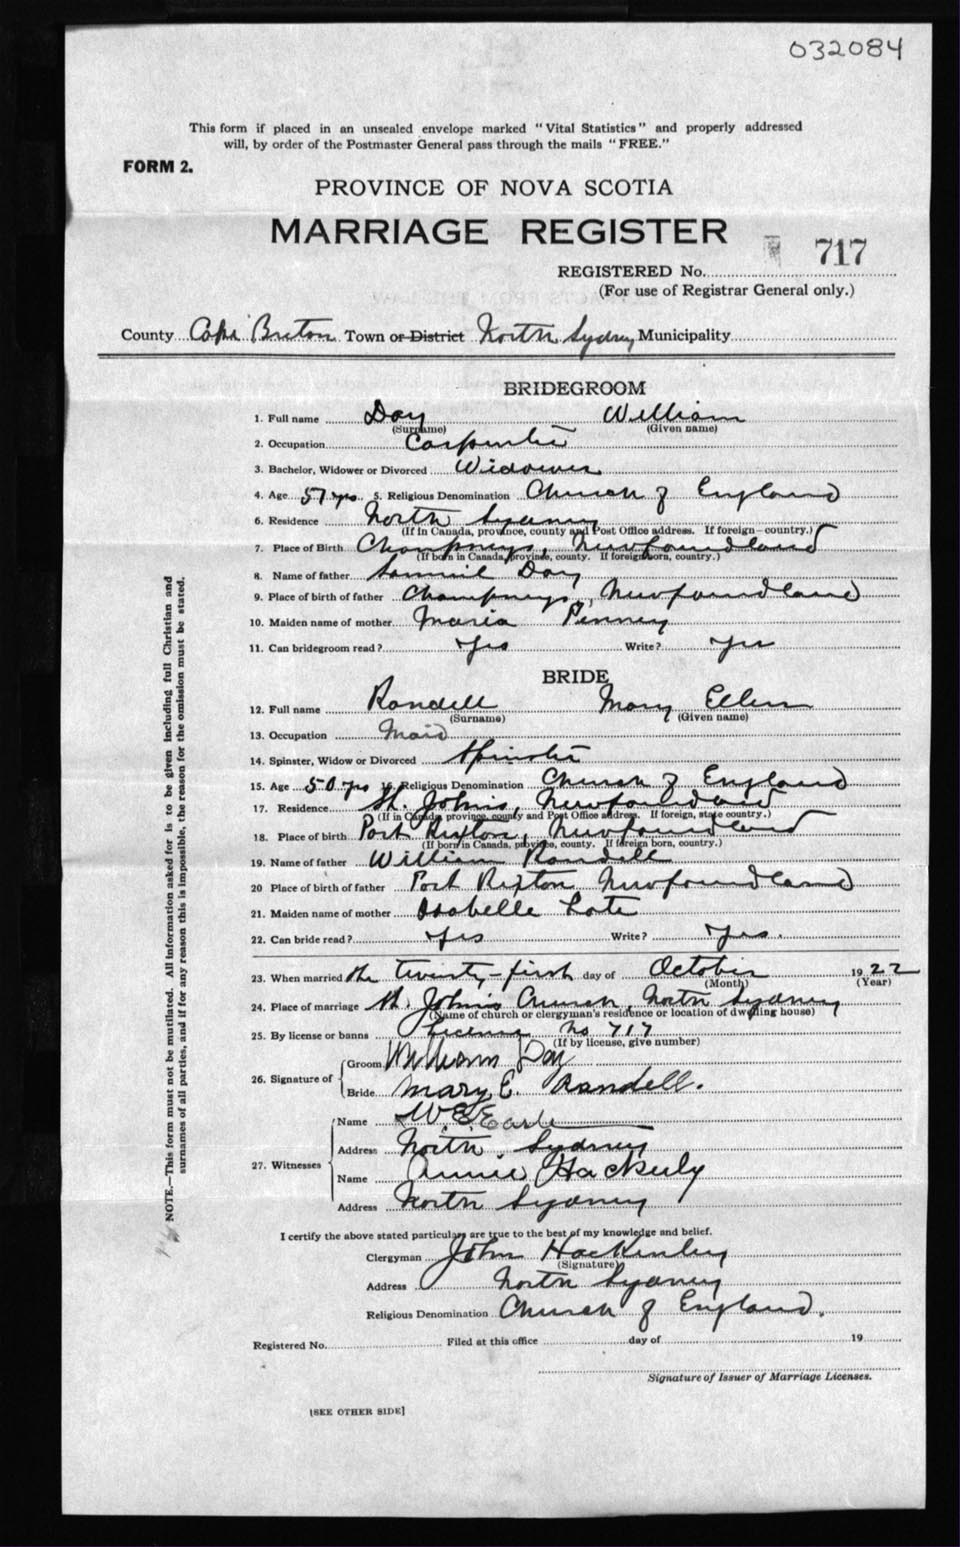 032084
This form if placed in an unsealed envelope marked "Vital Statistics" and properly addressed
will, by order of the Postmaster General pass through the mails "FREE."
FORM 2.
PROVINCE OF NOVA SCOTIA
MARRIAGE REGISTER
REGISTERED No. 717
(For use of Registrar General only.)
County Cape Breton Town or District North Sydney Municipality
BRIDEGROOM
1. Full name Day William
(Surname) (Given name)
2. Occupation Carpenter
3. Bachelor, Widower or Divorced Widower
4. Age 57 yrs 5. Religious Denomination Church of England
6. Residence North Sydney
(If in Canada, province, county and Post Office address. If foreign—country.)
7. Place of Birth Champneys, Newfoundland
(If born in Canada, province, county. If foreign born, country.)
8. Name of father Samuel Day
9. Place of birth of father Champneys, Newfoundland
10. Maiden name of mother Maria Penney
11. Can bridegroom read? Yes Write? Yes
BRIDE
12. Full name Randell Mary Ellen
(Surname) (Given name)
13. Occupation Maid
14. Spinster, Widow or Divorced Spinster
15. Age 50 yrs 16. Religious Denomination Church of England
17. Residence St. John's, Newfoundland
(If in Canada, province, county and Post Office address. If foreign, state country.)
18. Place of birth Port Rexton, Newfoundland
(If born in Canada, province, county. If foreign born, country.)
19. Name of father William Randell
20 Place of birth of father Port Rexton Newfoundland
21. Maiden name of mother Isabelle
22. Can bride read? Yes Write? Yes.
23. When married the twenty-first day of October 1922
(Month) (Year)
24. Place of marriage St. John's Church, North Sydney
(Name of church or clergyman's residence or location of dwelling house)
25. By license or banns License No 717
(If by license, give number)
26. Signature of
Groom William Day
Bride Mary E. Randell.
27. Witnesses
Name W. E. Earle
Address North Sydney
Name Annie Hackenly
Address North Sydney
I certify the above stated particulars are true to the best of my knowledge and belief.
Clergyman John Hackenley
(Signature)
Address North Sydney
Religious Denomination Church of England.
Registered No. Filed at this office day of 19
Signature of Issuer of Marriage Licenses.
[SEE OTHER SIDE]
NOTE.—This form must not be mutilated. All information asked for is to be given including full Christian and
surnames of all parties, and if for any reason this is impossible, the reason for the omission must be stated.